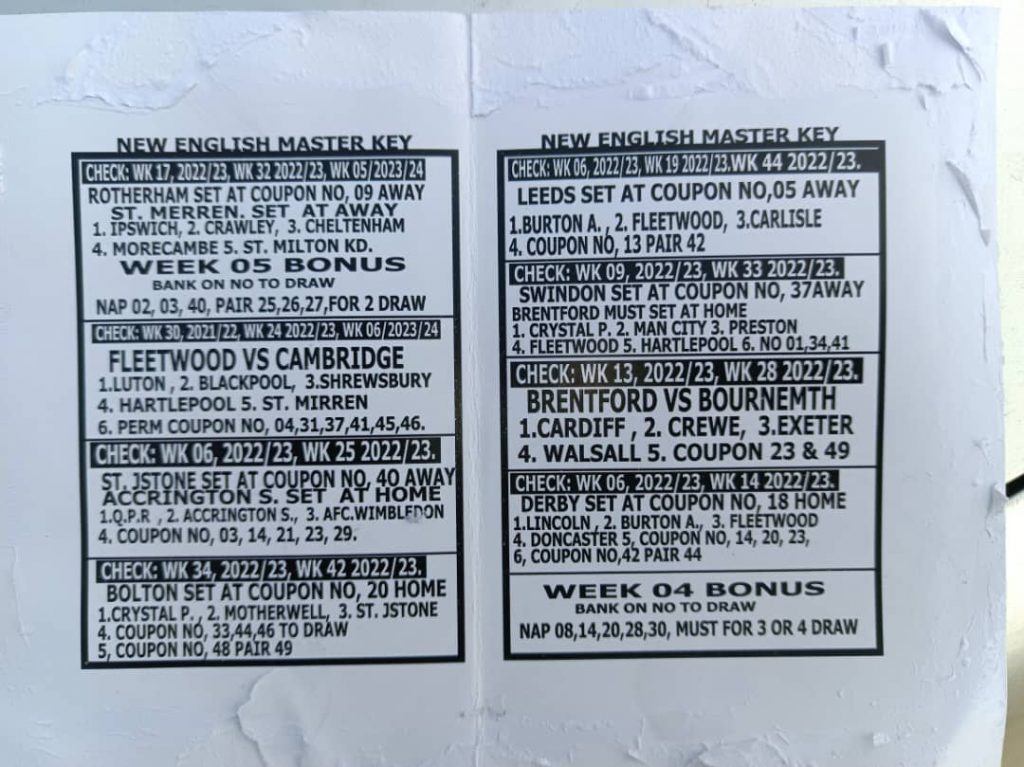 NEW ENGLISH MASTER KEY
CHECK: WK 17, 2022/23, WK 32 2022/23, WK 05/2023/24
ROTHERHAM SET AT COUPON NO, 09 AWAY
ST. MERREN. SET AT AWAY
1. IPSWICH, 2. CRAWLEY, 3. CHELTENHAM
4. MORECAMBE 5. ST. MILTON KD.
WEEK 05 BONUS
BANK ON NO TO DRAW
NAP 02, 03, 40, PAIR 25,26,27,FOR 2 DRAW
CHECK: WK 30, 2021/22, WK 24 2022/23, WK 06/2023/24
FLEETWOOD VS CAMBRIDGE
1.LUTON , 2. BLACKPOOL, 3.SHREWSBURY
4. HARTLEPOOL 5. ST. MIRREN
6. PERM COUPON NO, 04,31,37,41,45,46.
CHECK: WK 06, 2022/23, WK 25 2022/23.
ST. JSTONE SET AT COUPON NO, 40 AWAY
ACCRINGTON S. SET AT HOME
1.Q.P.R , 2. ACCRINGTON S., 3. AFC.WIMBLEDON
4. COUPON NO, 03, 14, 21, 23, 29.
CHECK: WK 34, 2022/23, WK 42 2022/23.
BOLTON SET AT COUPON NO, 20 HOME
1.CRYSTAL P. , 2. MOTHERWELL, 3. ST. JSTONE
4. COUPON NO, 33,44,46 TO DRAW
5, COUPON NO, 48 PAIR 49
NEW ENGLISH MASTER KEY
CHECK: WK 06, 2022/23, WK 19 2022/23.WK 44 2022/23.
LEEDS SET AT COUPON NO,05 AWAY
1.BURTON A. , 2. FLEETWOOD, 3.CARLISLE
4. COUPON NO, 13 PAIR 42
CHECK: WK 09, 2022/23, WK 33 2022/23.
SWINDON SET AT COUPON NO, 37AWAY
BRENTFORD MUST SET AT HOME
1. CRYSTAL P. 2. MAN CITY 3. PRESTON
4. FLEETWOOD 5. HARTLEPOOL 6. NO 01,34,41
CHECK: WK 13, 2022/23, WK 28 2022/23.
BRENTFORD VS BOURNEMTH
1.CARDIFF , 2. CREWE, 3.EXETER
4. WALSALL 5. COUPON 23 & 49
CHECK: WK 06, 2022/23, WK 14 2022/23.
DERBY SET AT COUPON NO, 18 HOME
1.LINCOLN , 2. BURTON A., 3. FLEETWOOD
4. DONCASTER 5, COUPON NO, 14, 20, 23,
6, COUPON NO,42 PAIR 44
WEEK 04 BONUS
BANK ON NO TO DRAW
NAP 08,14,20,28,30, MUST FOR 3 OR 4 DRAW